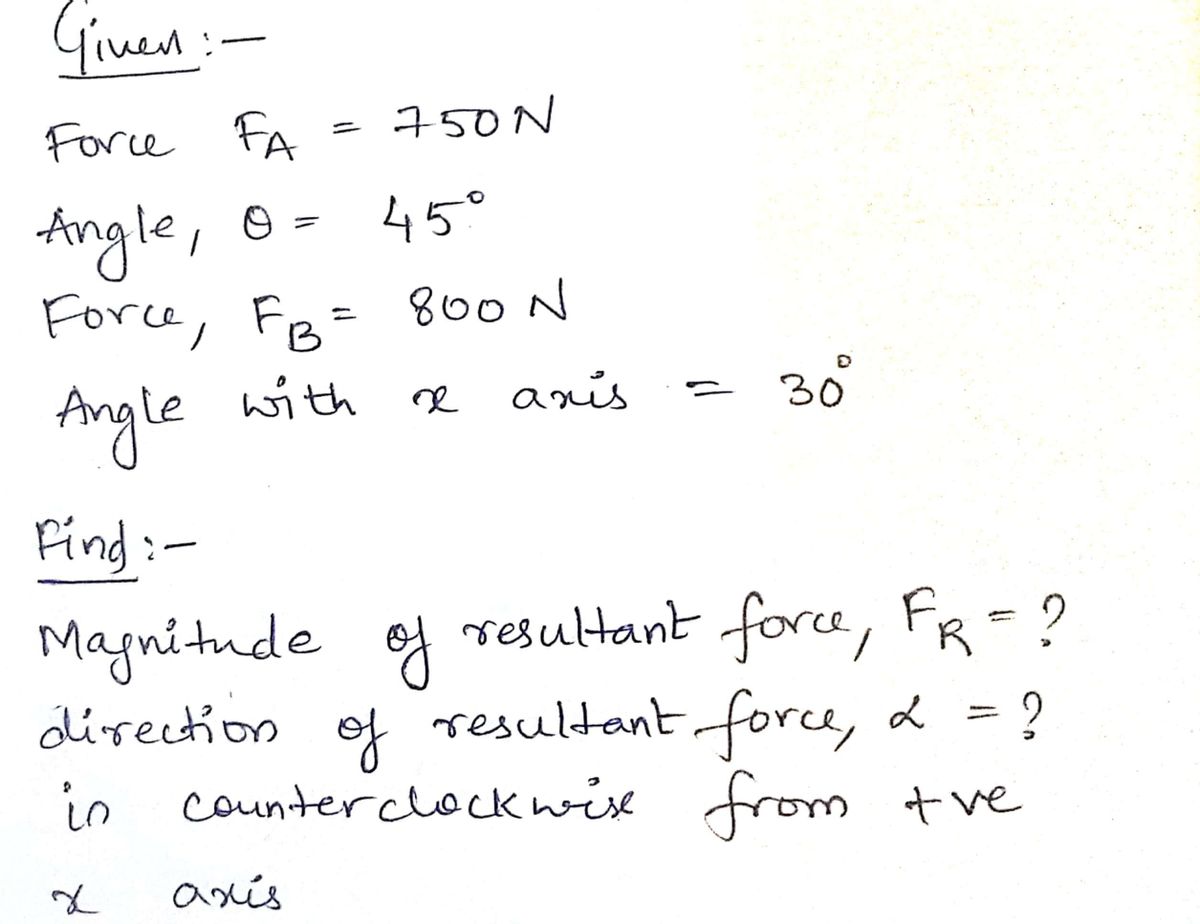 Given :-
Force FA = 750 N
Angle, θ = 45°
Force, FB = 800 N
Angle with x axis = 30°
Find :-
Magnitude of resultant force, FR = ?
direction of resultant force, α = ?
in counterclockwise from +ve
x axis